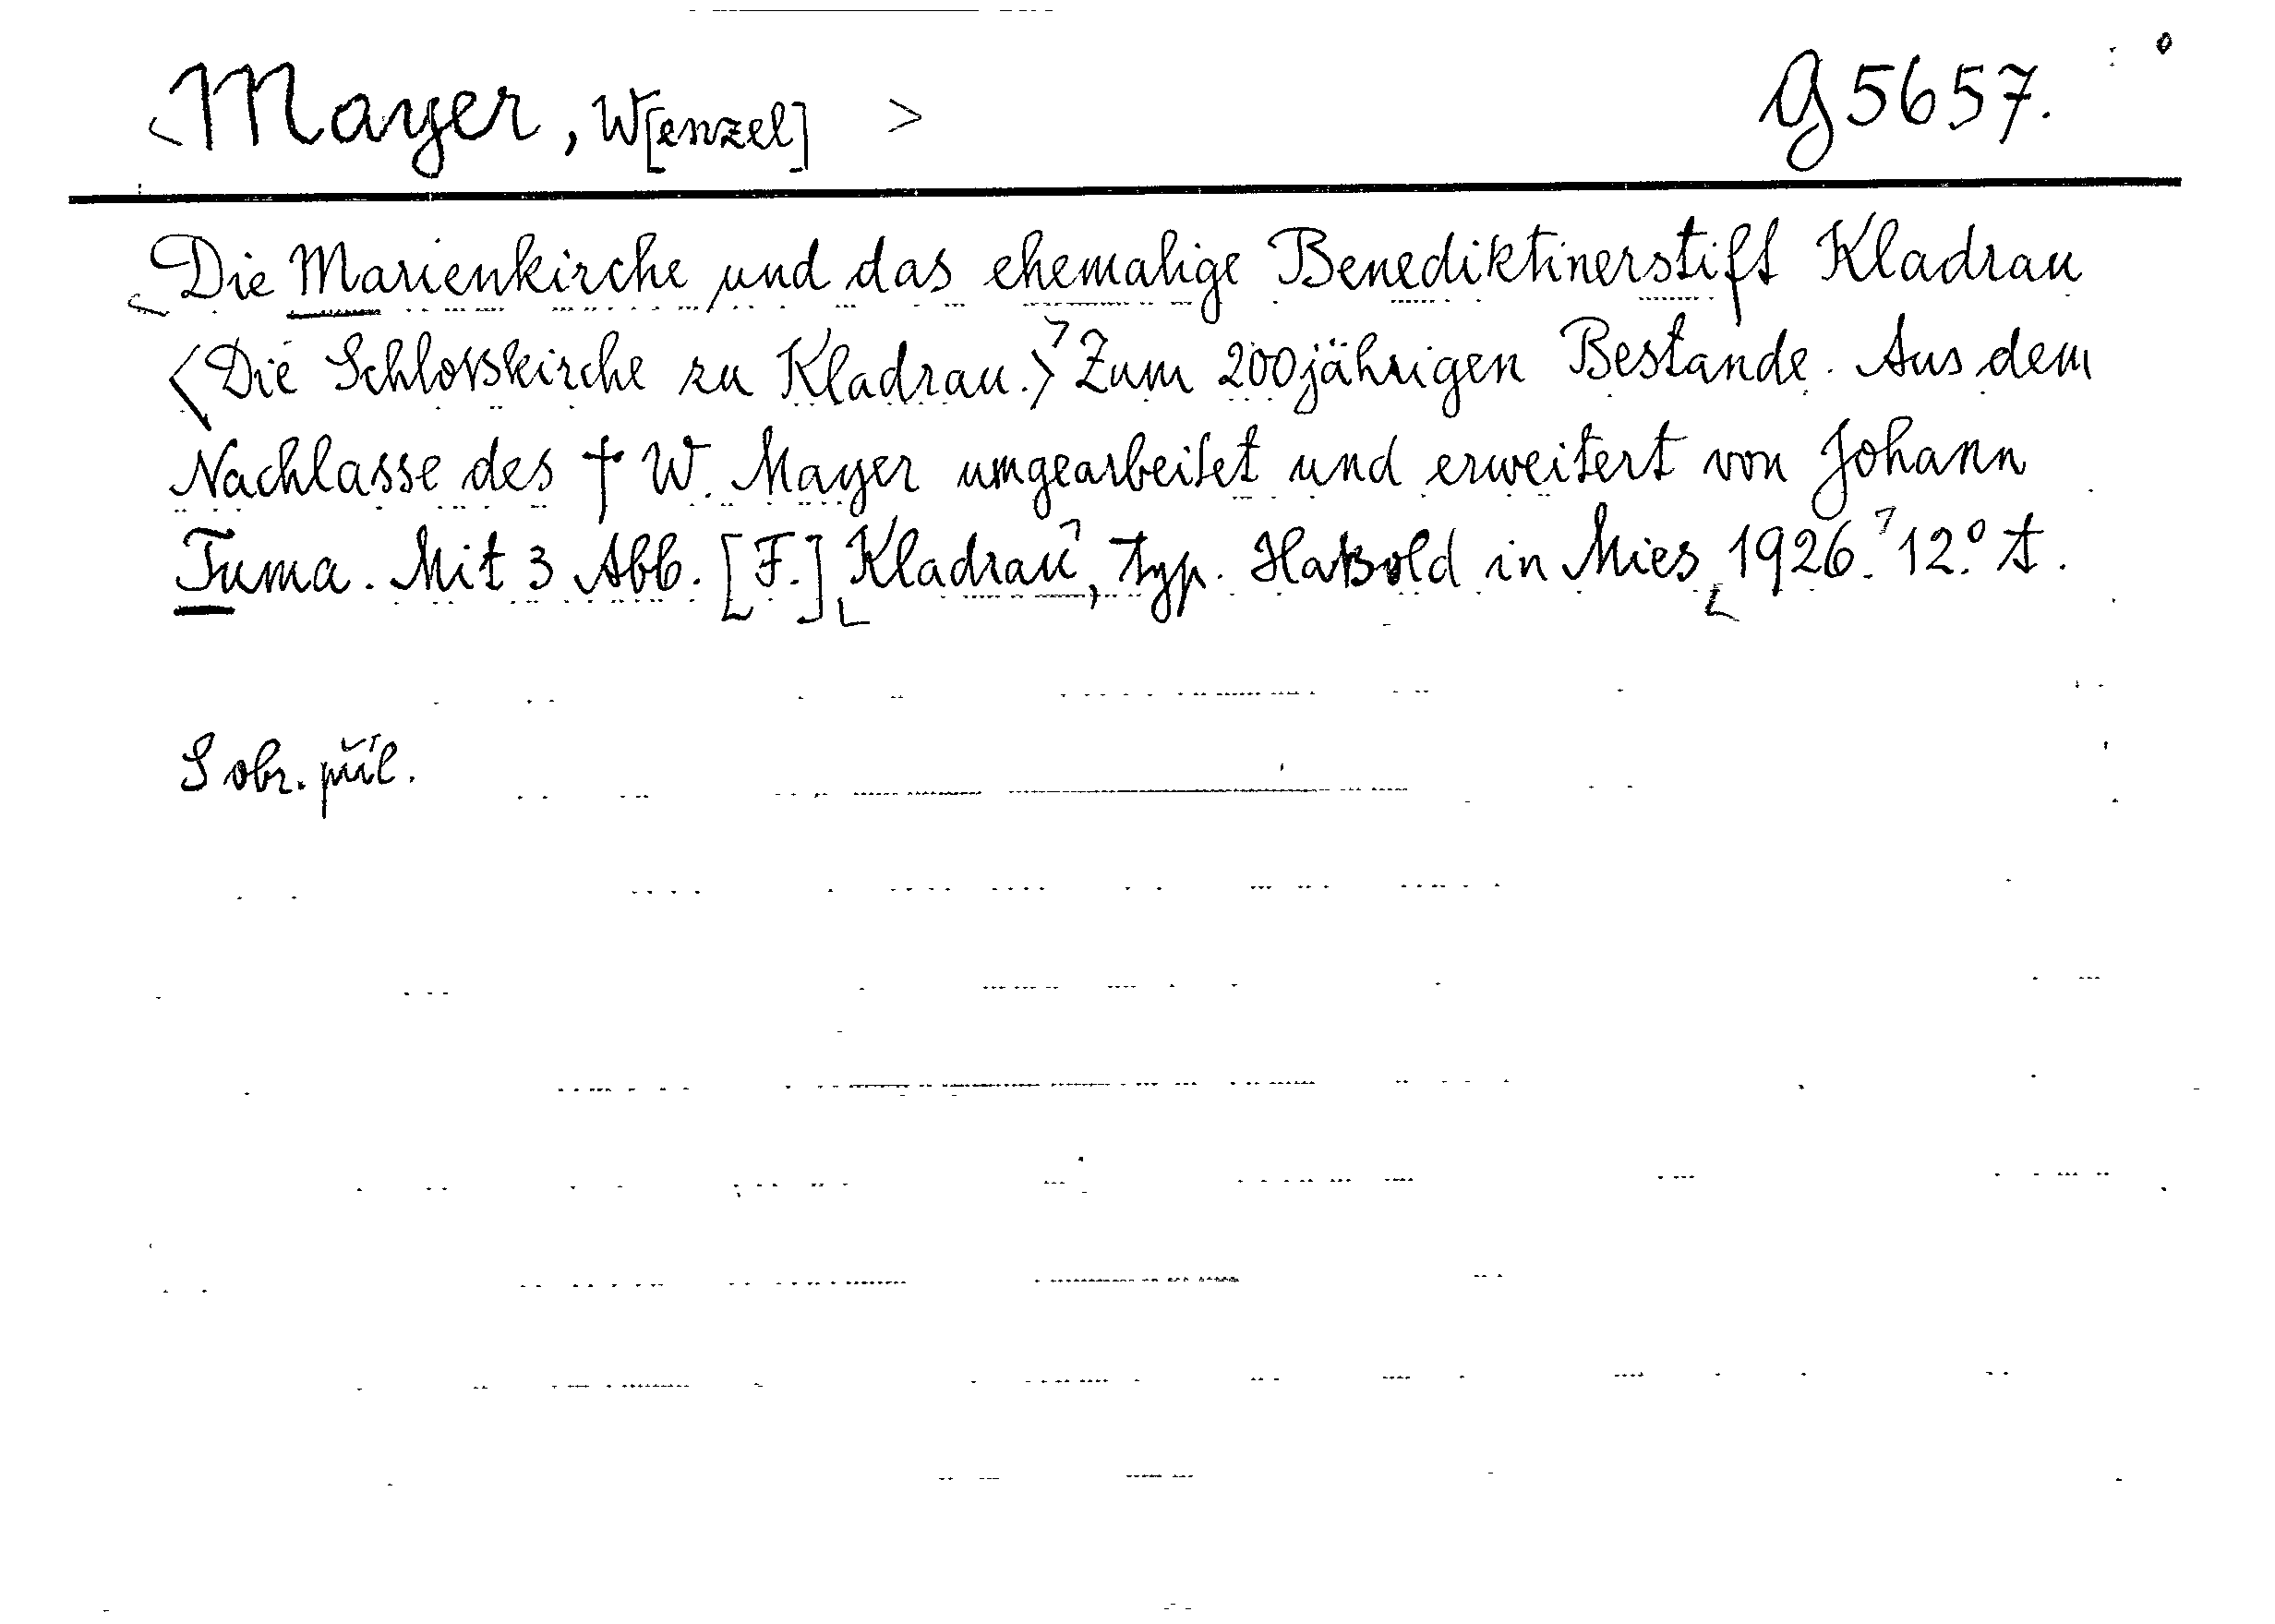 <Mayer, W[enzel] > G 5657.
<Die Marienkirche und das ehemalige Benediktinerstift Kladrau
<Die Schlosskirche zu Kladrau.>> Zum 200jährigen Bestande. Aus dem
Nachlasse des † W. Mayer umgearbeitet und erweitert von Johann
Tuma. Mit 3 Abb. [F.] <Kladrau>, typ. in Mies <1926.> 12.° A.
S obr. příl.